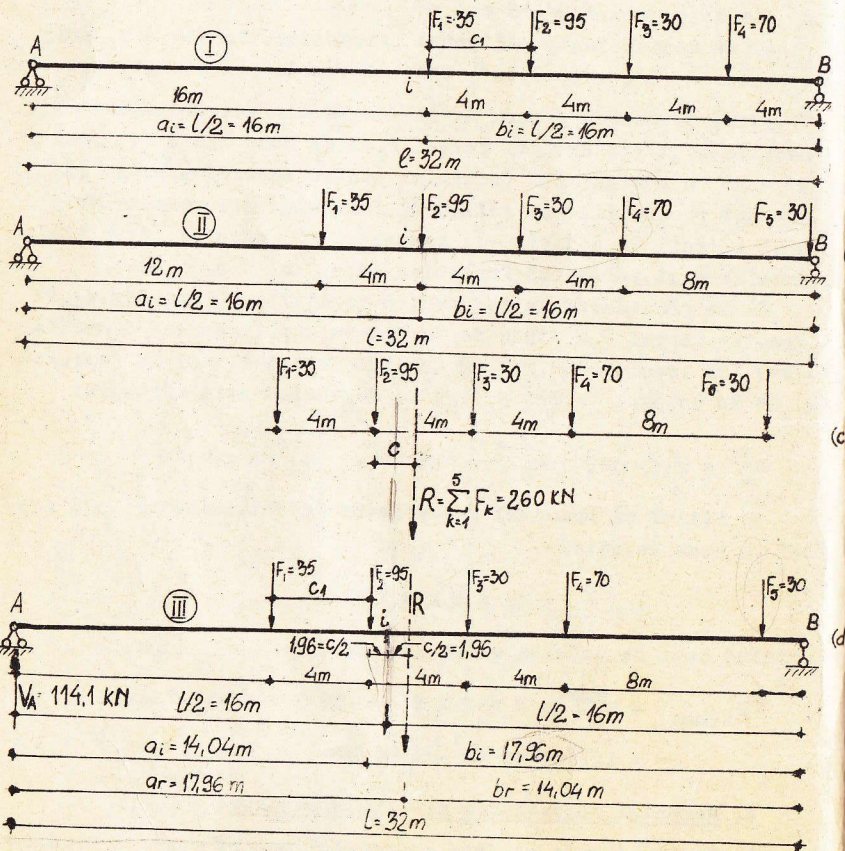 F₁=35 F₂=95 F₃=30 F₄=70
c₁
A I B
i
16m 4m 4m 4m 4m
aᵢ=l/2=16m bᵢ=l/2=16m
l=32m
F₁=35 F₂=95 F₃=30 F₄=70 F₅=30
A II i B
12m 4m 4m 4m 8m
aᵢ=l/2=16m bᵢ=l/2=16m
l=32m
F₁=35 F₂=95 F₃=30 F₄=70 F₅=30
4m 4m 4m 8m
(c
c
R=∑⁵ₖ₌₁Fₖ=260KN
F₁=35 F₂=95 F₃=30 F₄=70 F₅=30
c₁ R
A III i B
(d
1,96=c/2 c/2=1,96
4m 4m 4m 8m
V_A=114,1 KN l/2=16m l/2=16m
aᵢ=14,04m bᵢ=17,96m
ar=17,96m br=14,04m
L=32m